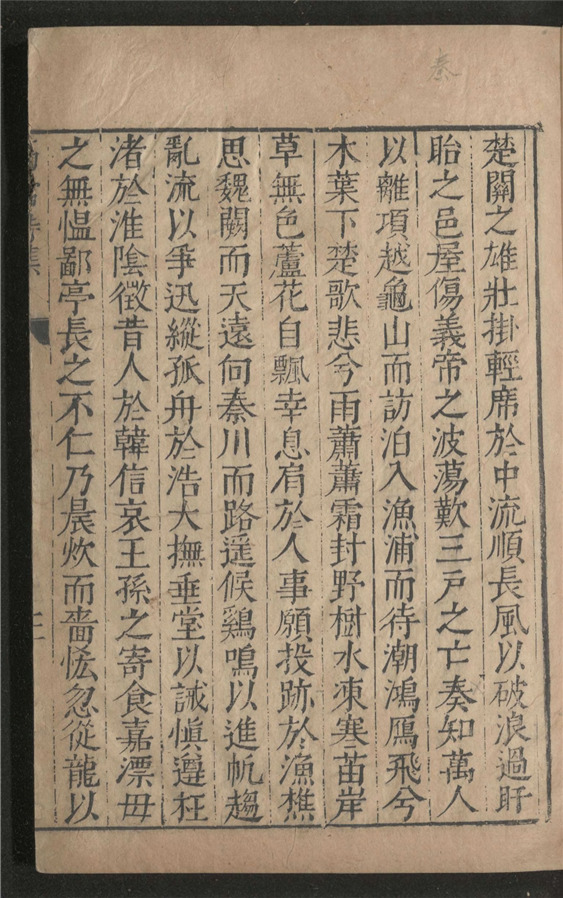 秦
楚關之雄壯掛輕席於中流順長風以破浪過盱
眙之邑屋傷義帝之波蕩歎三戸之亡秦知萬人
以離項越龜山而訪泊入漁浦而待潮鴻鴈飛兮
木葉下楚歌悲兮雨蕭蕭霜封野樹水凍寒苗岸
草無色蘆花自飄幸息肩於人事願投跡於漁樵
思魏闕而天遠向秦川而路遥候鷄鳴以進帆趨
亂流以爭迅縱孤舟於浩大撫垂堂以誡愼遵枉
渚於淮陰徵昔人於韓信哀王孫之寄食嘉漂毋
之無愠鄙亭長之不仁乃晨炊而嗇恡忽從龍以